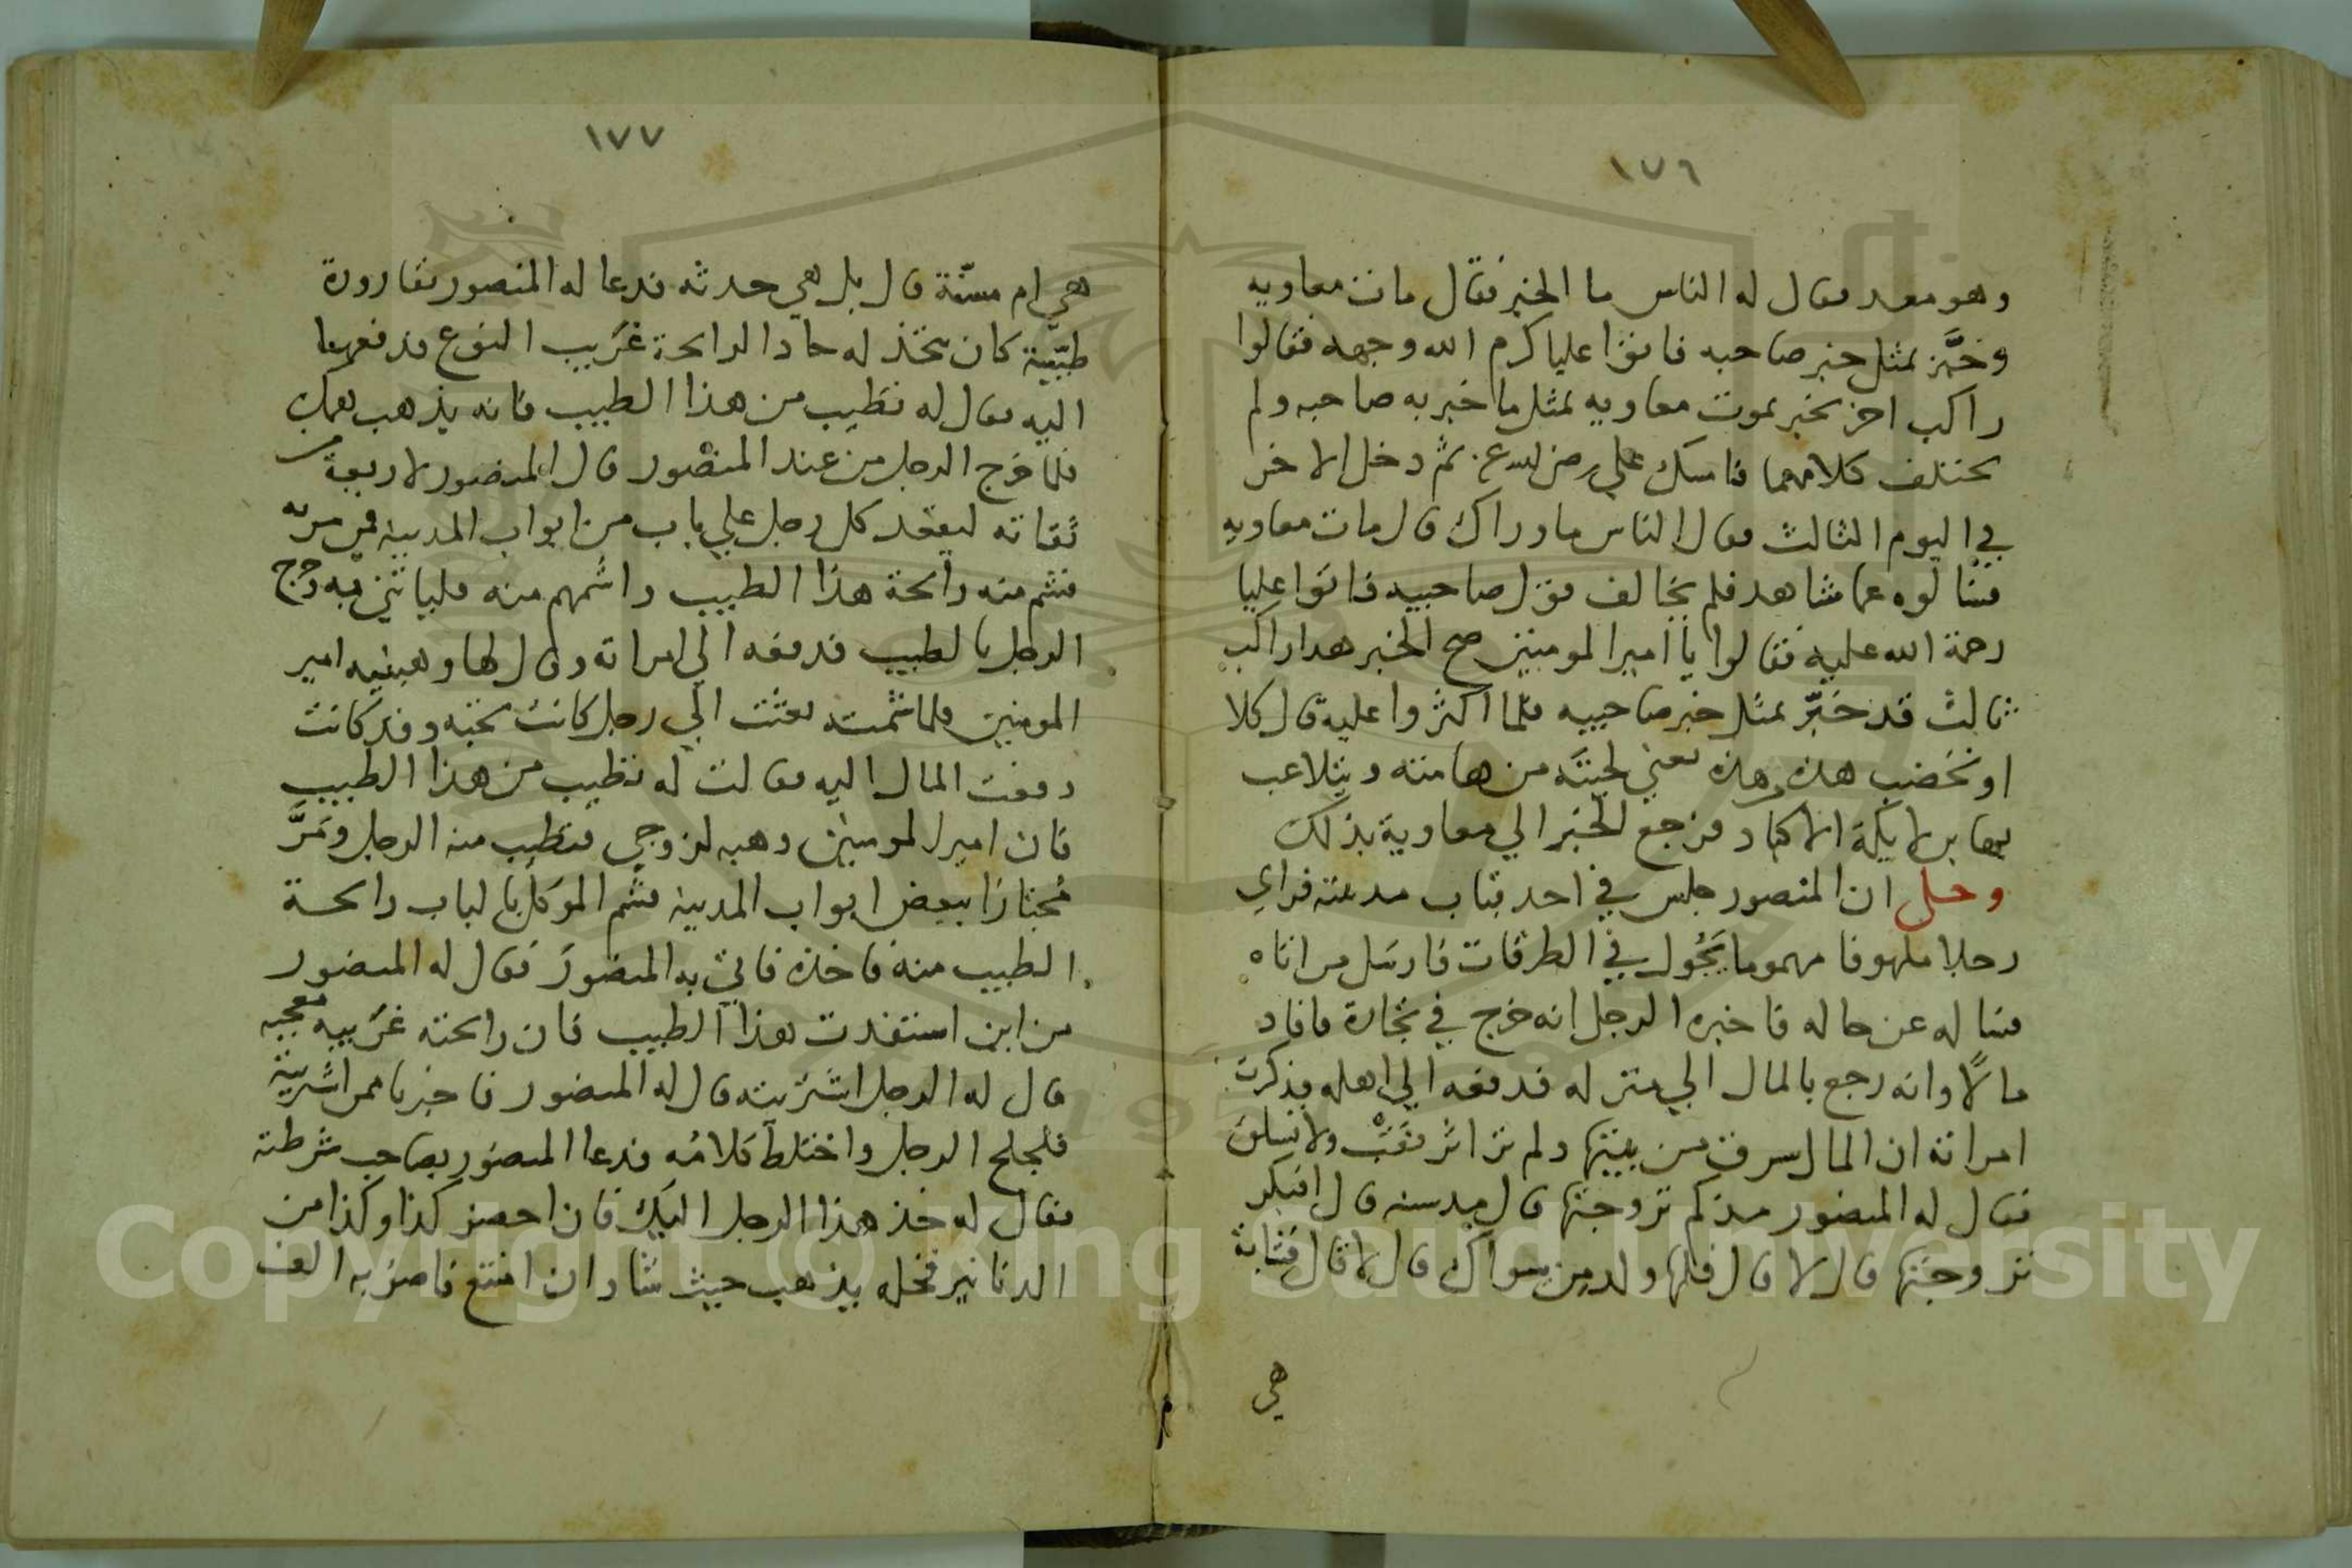 ١٧٦
وهو معد فقال له الناس ما الخبر فقال مات معاويه
وخبَّر بمثل خبر صاحبه فاتوا عليا كرم الله وجهه فقالوا
راكب اخر يخبر بموت معاويه بمثل ما خبر به صاحبه ولم
يختلف كلامهما فامسك علي رضي الله عنه ثم دخل الاخر
في اليوم الثالث فقال الناس ما وراك قال مات معاويه
فسالوه عما شاهد فلم يخالف قول صاحبيه فاتوا عليا
رحمة الله عليه فقالوا يا امير المومنين صح الخبر هذا راكب
ثالث قد خبَّر بمثل خبر صاحبيه فلما اكثروا عليه قال كلا
او تخضب هذه من هذه يعني لحيته من هامته ويتلاعب
بها ابن لايكة الاكباد فرجع الخبر الي معاوية بذلك
وحكي ان المنصور جلس في احد قباب مدينته فراي
رجلا ملهوفا مهموما يَجُول في الطرقات فارسل من اتاه
فساله عن حاله فاخبره الرجل انه خرج في تجارة فافاد
مالًا وانه رجع بالمال الي منزله فدفعه الي اهله فذكرت
امراته ان المال سرق من بيتها ولم تر اثر نقب ولا تسلق
فقال له المنصور مذكم تزوجتها قال مذ سنه قال افبكر
تزوجتها قال لا قال فلها ولد من سواك قال لا قال فشابة
هي
١٧٧
هي ام مسنّة قال بل هي حدثه فدعا له المنصور بقارورة
طيّبة كان يتخذ له حاد الرايحة غريب النوع فدفعها
اليه فقال له تطيب من هذا الطيب فانه يذهب همك
فلما خرج الرجل من عند المنصور قال المنصور لاربعة من
ثقاته ليقعد كل رجل علي باب من ابواب المدينه فمن مر به
فشم منه رايحة هذا الطيب واشمهم منه فلياتني به وخرج
الرجل بالطيب فدفعه الي امراته وقال لها وهبنيه امير
المومنين فلما شمته بعثت الي رجل كانت تحبه وقد كانت
دفعت المال اليه فقالت له تطيب من هذا الطيب
فان امير المومنين وهبه لزوجي فتطيب منه الرجل ومَرَّ
مُجتازًا ببعض ابواب المدينه فشم الموكل بالباب رايحة
الطيب منه فاخذه فاتي به المنصور فقال له المنصور
من اين استفدت هذا الطيب فان رايحته غريبه معجبه
قال له الرجل اشتريته قال له المنصور فاخبرنا ممن اشتريته
فلجلج الرجل واختلط كلامُه فدعا المنصور بصاحب شرطته
فقال له خذ هذا الرجل اليك فان احضر كذا وكذا من
الدنانير فخله يذهب حيث شا وان امتنع فاضربه الف
Copyright © King Saud University